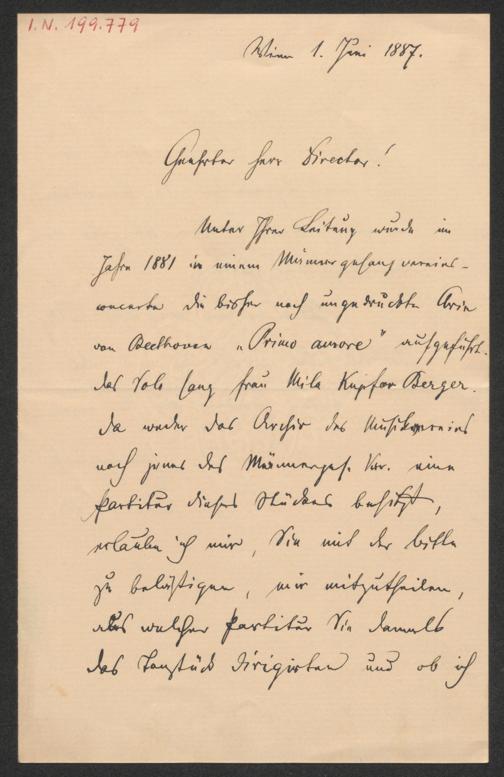 I.N. 199.779
Wien 1. Juni 1887.
Geehrter Herr Director!
Unter Ihrer Leitung wurde im
Jahre 1881 in einem Männergesangvereins-
concerte die bisher noch ungedruckte Arie
von Beethoven „Primo amore" aufgeführt.
Das Solo sang Frau Mila Kupfer Berger.
Da weder das Archiv des Musikvereins
noch jenes des Männerges. Ver. eine
Partitur dieses Stückes besitzt,
erlaube ich mir, Sie mit der Bitte
zu belästigen, mir mitzutheilen,
aus welcher Partitur Sie damals
das Tonstück dirigirten und ob ich